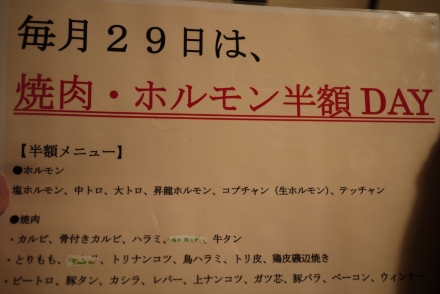 毎月２９日は、
焼肉・ホルモン半額 DAY
【半額メニュー】
●ホルモン
塩ホルモン、中トロ、大トロ、昇龍ホルモン、コプチャン（生ホルモン）、テッチャン
●焼肉
・カルビ、骨付きカルビ、ハラミ、、牛タン
・とりもも、、トリナンコツ、鳥ハラミ、トリ皮、鶏皮磯辺焼き
・ピートロ、豚タン、カシラ、レバー、上ナンコツ、ガツ芯、豚バラ、ベーコン、ウィンナー